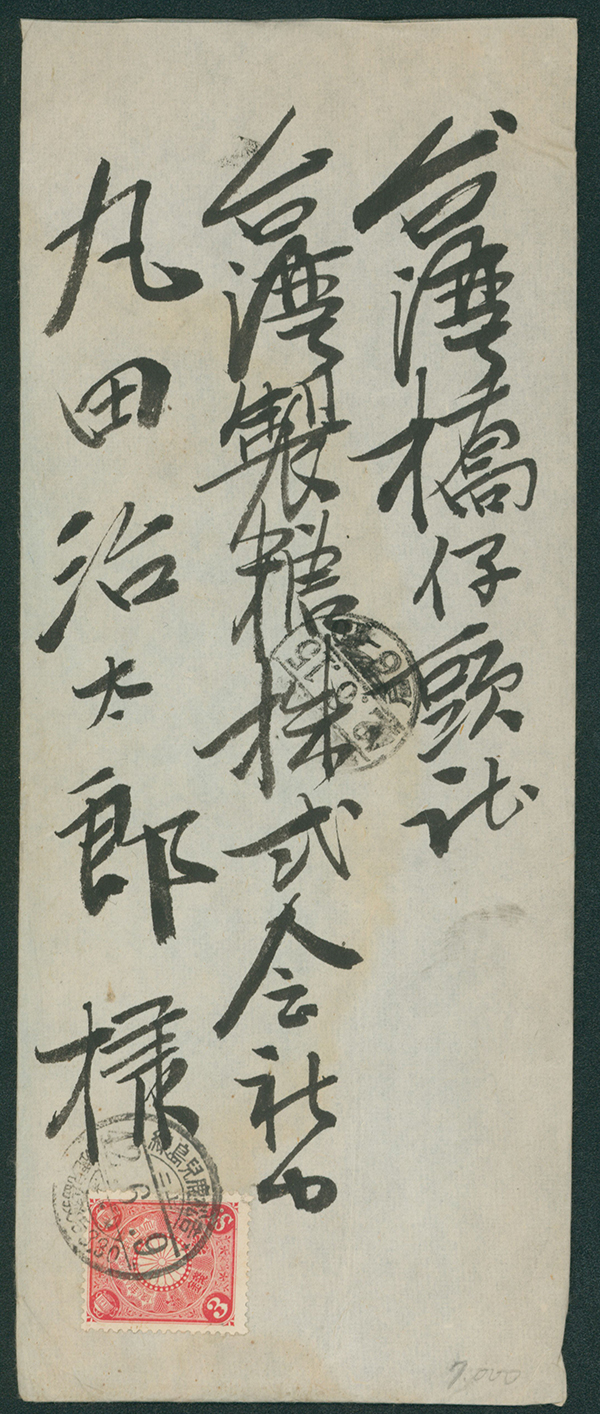 台湾橋仔頭社
台湾製糖株式会社内
丸田治太郎様
3
7.000